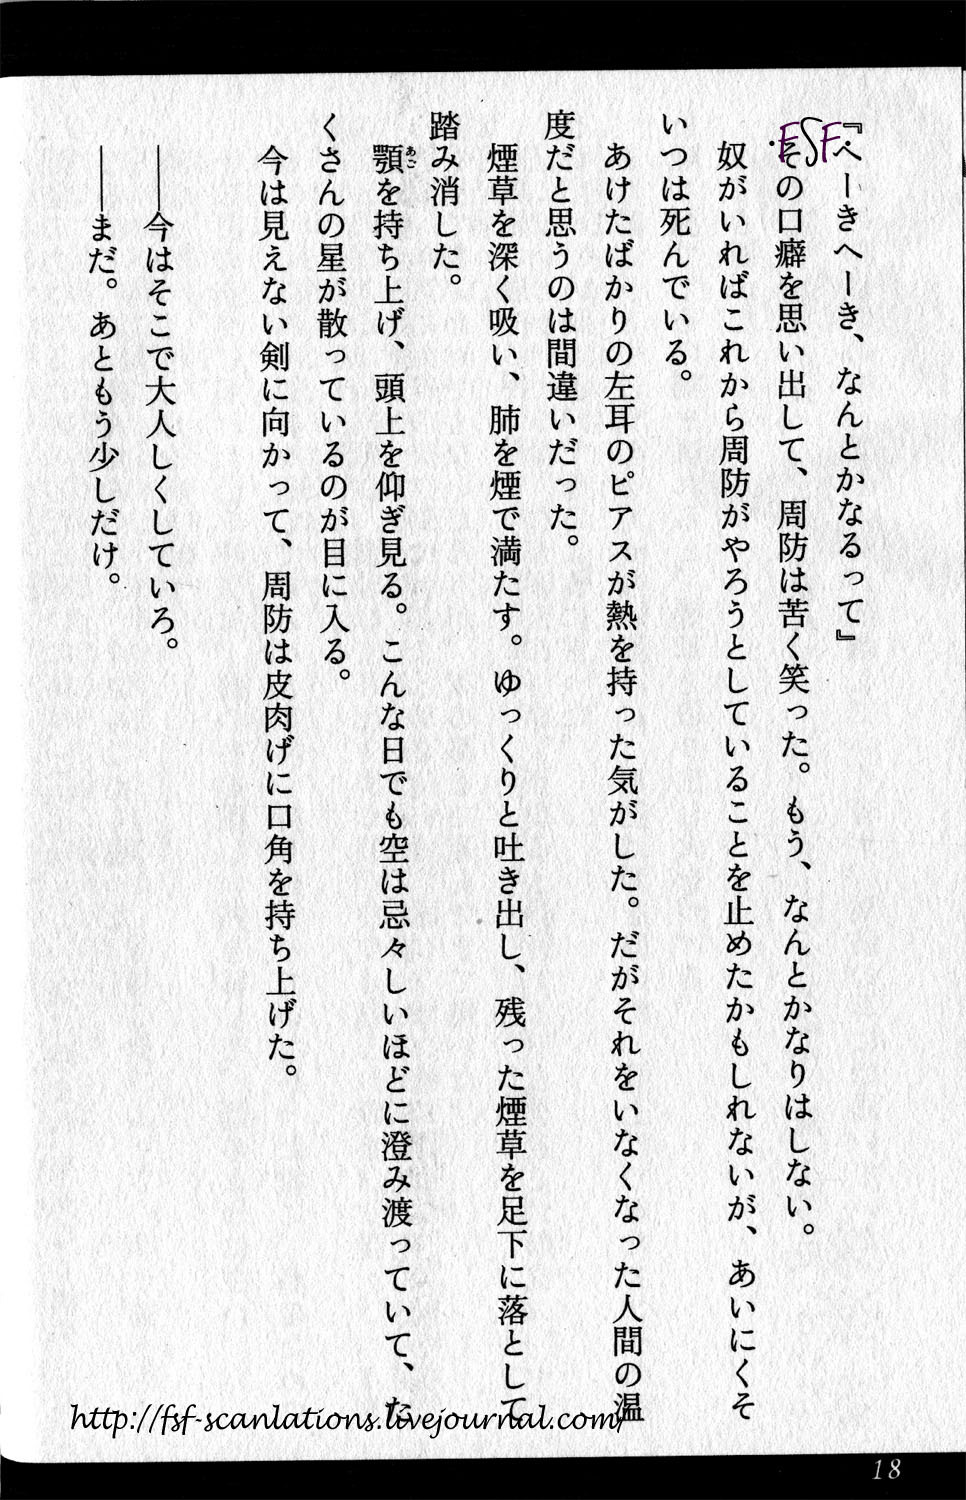 『へーきへーき、なんとかなるって』
その口癖を思い出して、周防は苦く笑った。もう、なんとかなりはしない。
奴がいればこれから周防がやろうとしていることを止めたかもしれないが、あいにくそ
いつは死んでいる。
あけたばかりの左耳のピアスが熱を持った気がした。だがそれをいなくなった人間の温
度だと思うのは間違いだった。
煙草を深く吸い、肺を煙で満たす。ゆっくりと吐き出し、残った煙草を足下に落として
踏み消した。
顎を持ち上げ、頭上を仰ぎ見る。こんな日でも空は忌々しいほどに澄み渡っていて、た
あご
くさんの星が散っているのが目に入る。
今は見えない剣に向かって、周防は皮肉げに口角を持ち上げた。
――今はそこで大人しくしていろ。
――まだ。あともう少しだけ。
FSF
http://fsf-scanlations.livejournal.com/
18